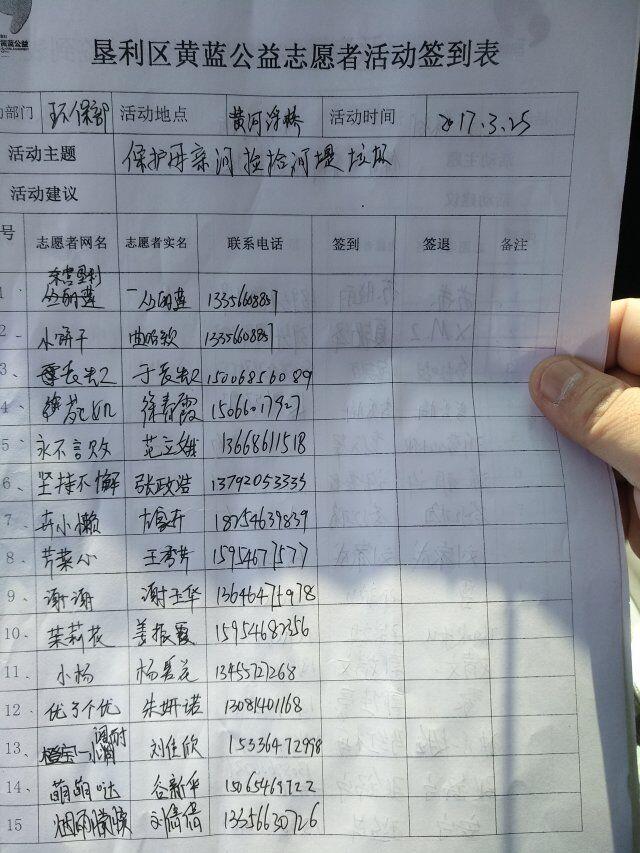 黄蓝公益
垦利区黄蓝公益志愿者活动签到表
动部门 环保部 活动地点 黄河浮桥 活动时间 2017.3.25
活动主题 保护母亲河 捡拾河堤垃圾
活动建议
号 志愿者网名 志愿者实名 联系电话 签到 签退 备注
1 丛丽莲 丛丽莲 13356608857
2 小饼干 13356608857
3、 于长杰 15068560089
4 徐春霞 15066017927
5 永不言败 范立娥 13668611518
6、 坚持不懈 张政浩 13792053335
7、 卉小懒 18754639839
8、 芹菜小 王秀芳 15954677577
9、 谢谢 谢玉华 13646475978
10、 茉莉花 姜振霞 15954682356
11、 小杨 13455727268
12 优了个优 朱妍诺 13081401168
13、 刘佳欣 15336472998
14、 萌萌哒 谷新华 15065469722
15 烟雨朦胧 刘倩倩 13356630726